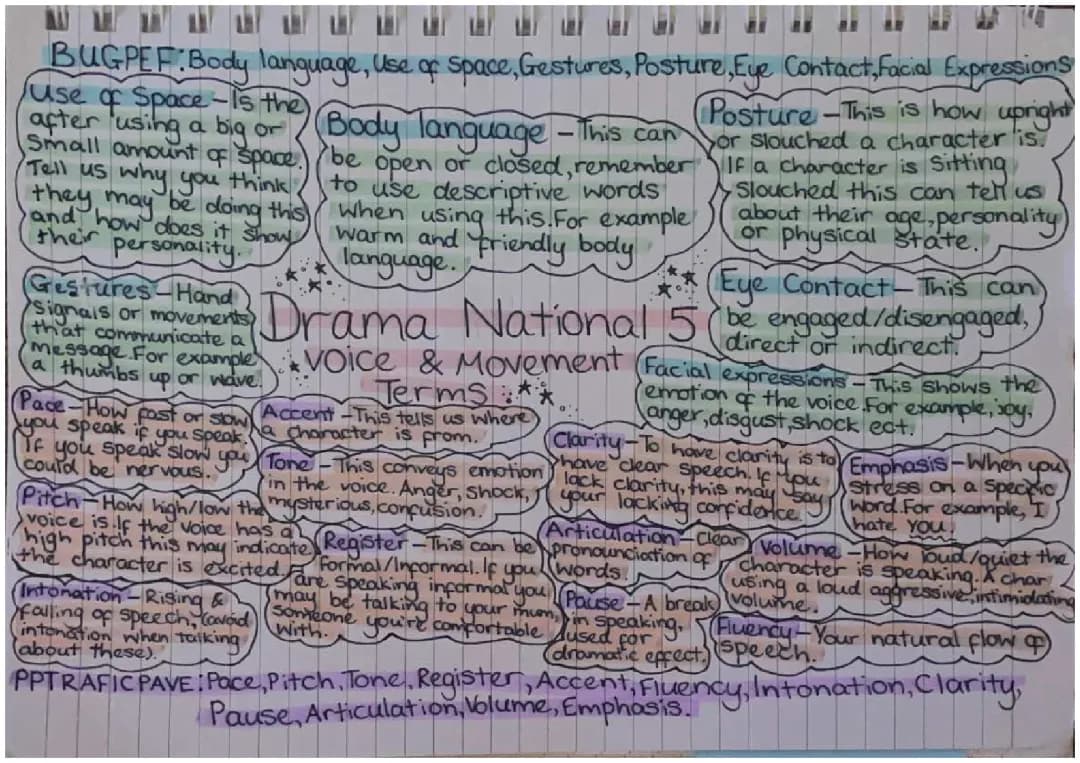 BUGPEF: Body language, Use of Space, Gestures, Posture, Eye Contact, Facial Expressions
Use of Space - Is the
after using a big or
Small amount of space.
Tell us why you think
they may be doing this
and how does it show
their personality.
Body language - This can
be open or closed, remember
to use descriptive words
when using this. For example
warm and friendly body
language.
Posture - This is how upright
or slouched a character is.
If a character is Sitting
Slouched this can tell us
about their age, personality
or physical state.
Gestures - Hand
Signals or movements
that communicate a
message. For example
a thumbs up or wave.
Drama National 5
Voice & Movement
Terms
Eye Contact - This can
be engaged/disengaged,
direct or indirect.
Facial expressions - This shows the
emotion of the voice. For example, joy,
anger, disgust, shock ect.
Pace - How fast or slow
you speak if you speak.
If you speak slow you
could be nervous.
Accent - This tells us where
a character is from.
Tone - This conveys emotion
in the voice. Anger, Shock,
mysterious, confusion.
Clarity - To have clarity is to
have clear speech. If you
lack clarity, this may say
your lacking confidence.
Emphasis - When you
stress on a specific
word. For example, I
hate you.
Pitch - How high/low the
voice is. If the voice has a
high pitch this may indicate
the character is excited.
Register - This can be
Formal/Informal. If you
are speaking informal you
may be talking to your mum,
someone you're comfortable
with.
Articulation - Clear
pronounciation of
words.
Volume - How loud/quiet the
character is speaking. A char
using a loud aggressive, intimidating
volume.
Intonation - Rising &
falling of speech, (avoid
intonation when talking
about these).
Pause - A break
in speaking,
used for
dramatic effect.
Fluency - Your natural flow of
speech.
PPTRAFICPAVE: Pace, Pitch, Tone, Register, Accent, Fluency, Intonation, Clarity,
Pause, Articulation, Volume, Emphasis.